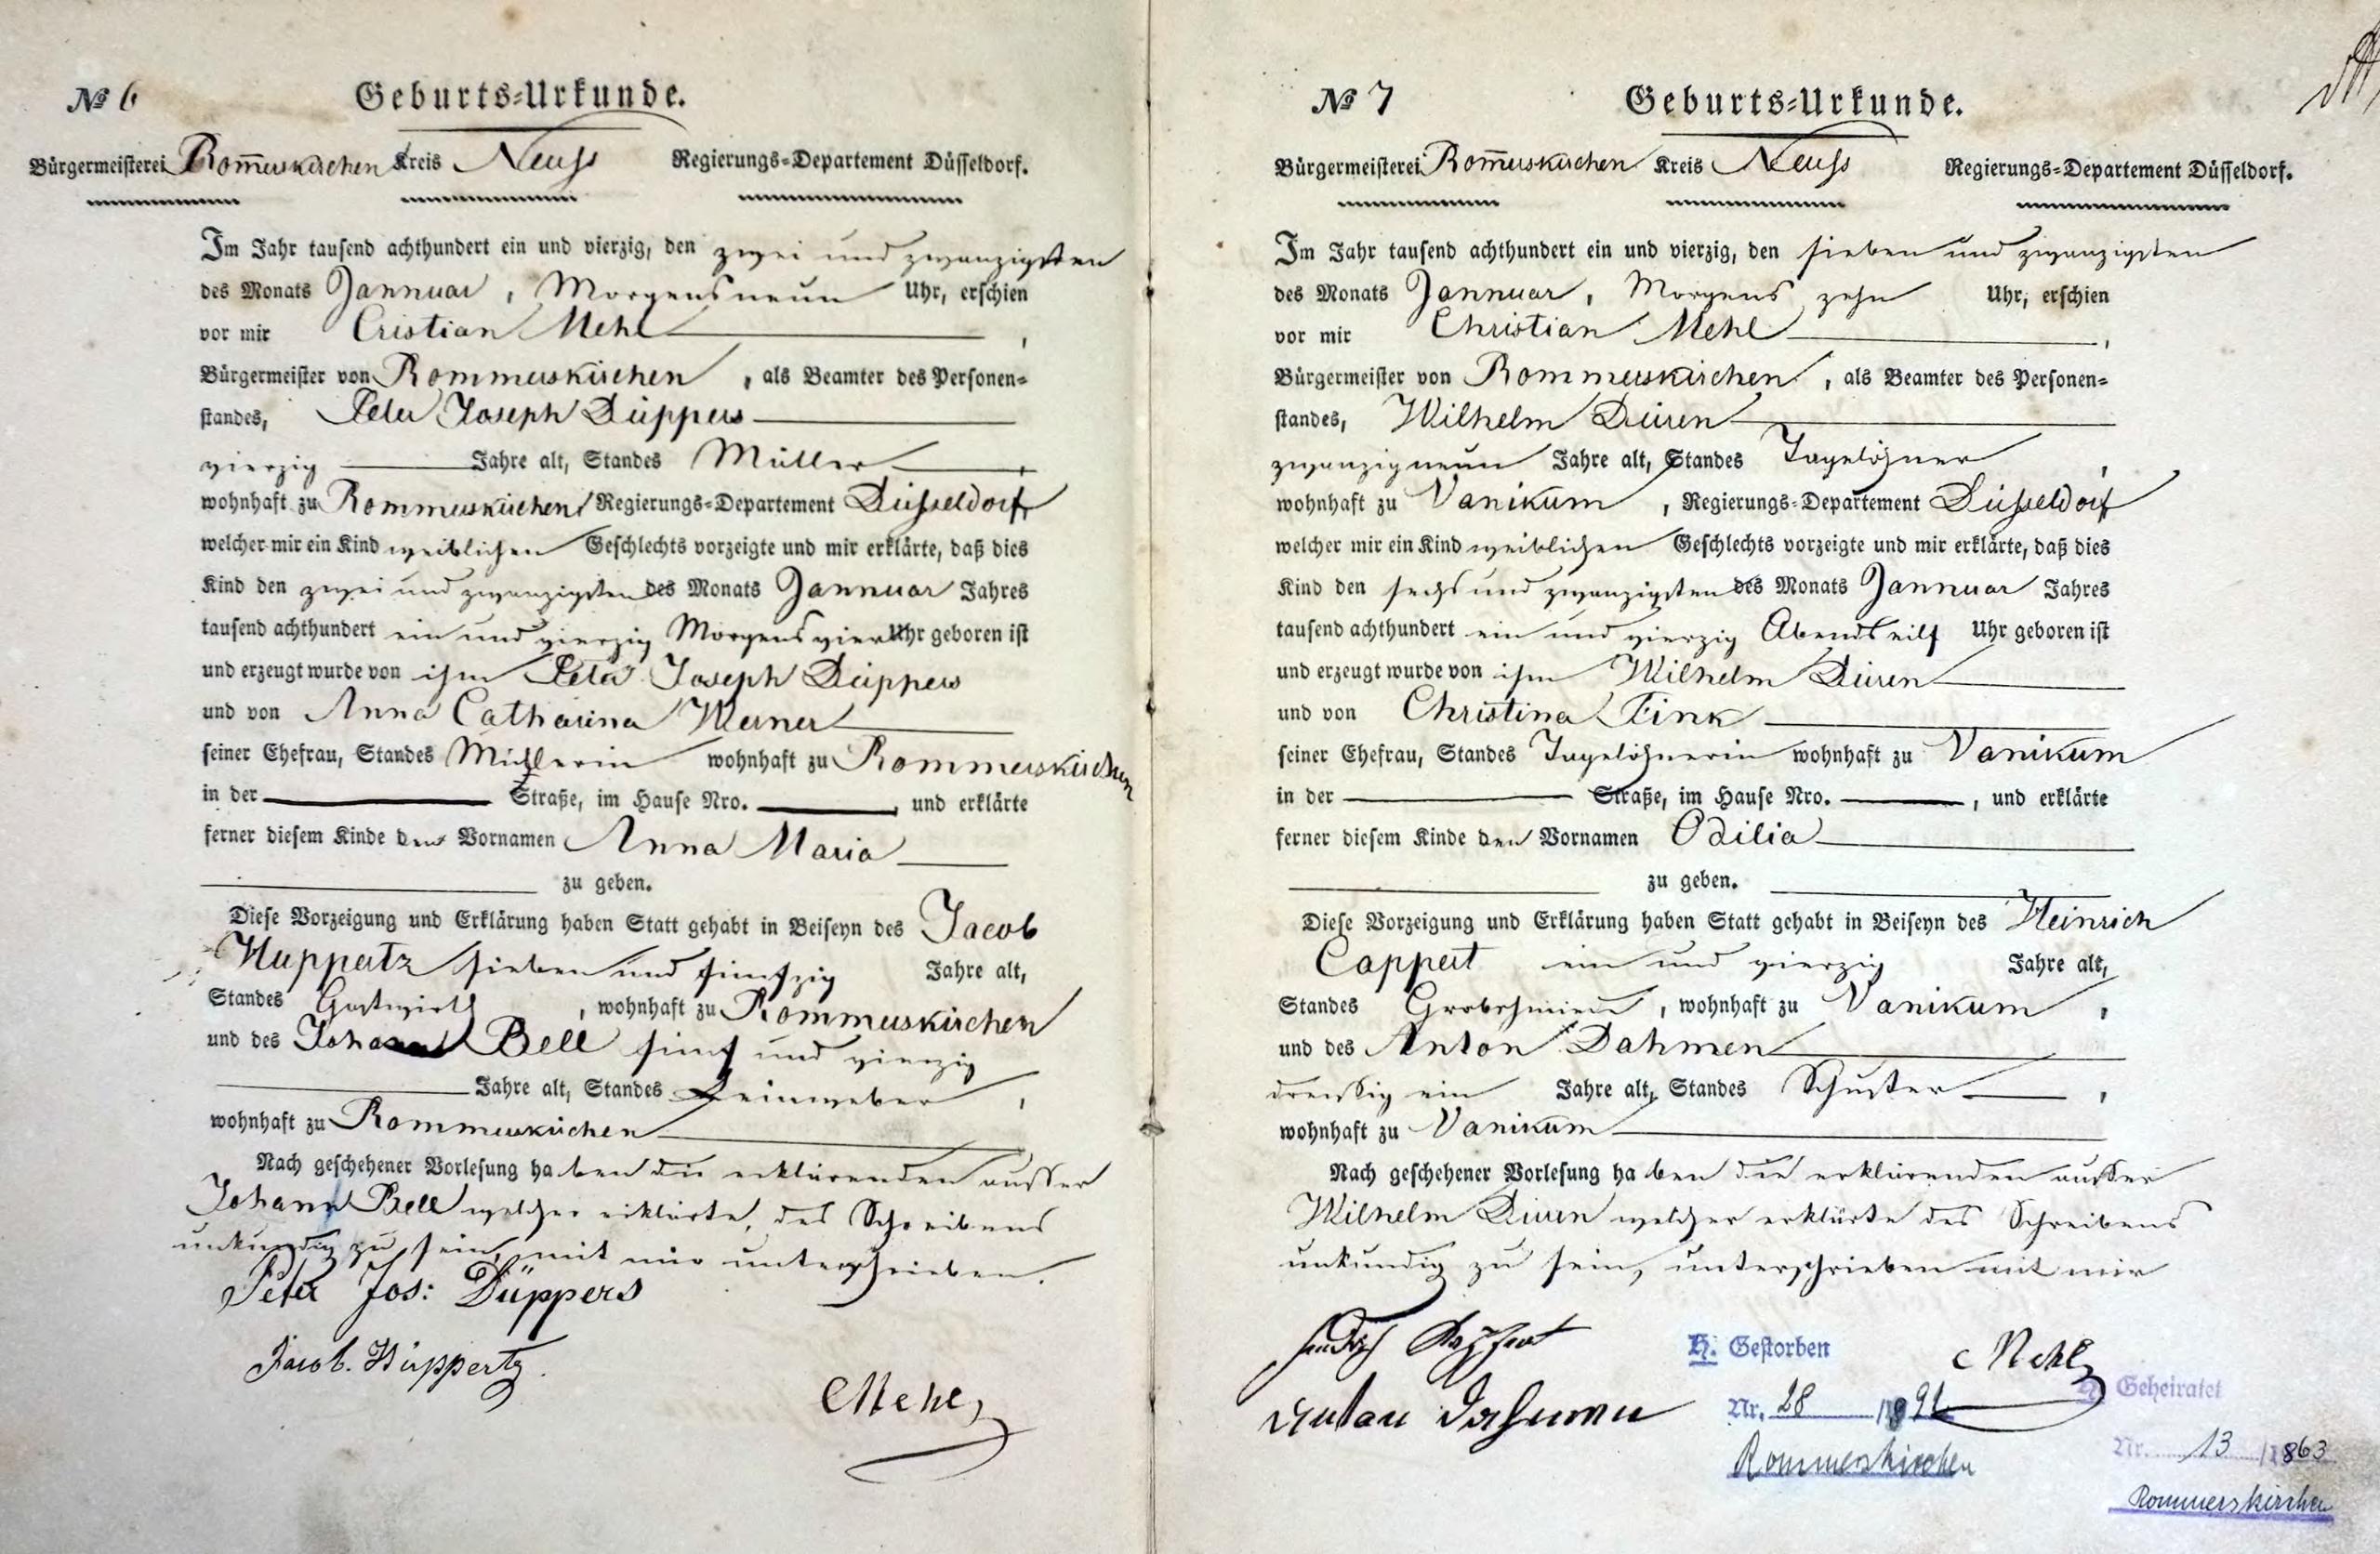 № 6
Geburts-Urkunde.
Bürgermeisterei Rom̅erskirchen Kreis Neuss Regierungs-Departement Düsseldorf.
Im Jahr tausend achthundert ein und vierzig, den zwei und zwanzigsten
des Monats Jannuar, Morgens neun Uhr, erschien
vor mir Cristian Mehl,
Bürgermeister von Rommerskirchen, als Beamter des Personen-
standes, Peter Joseph Düppers
vierzig Jahre alt, Standes Müller,
wohnhaft zu Rommerskirchen, Regierungs-Departement Düsseldorf,
welcher mir ein Kind weiblichen Geschlechts vorzeigte und mir erklärte, daß dies
Kind den zwei und zwanzigsten des Monats Jannuar Jahres
tausend achthundert ein und vierzig Morgens vier Uhr geboren ist
und erzeugt wurde von ihm Peter Joseph Düppers
und von Anna Catharina Werner
seiner Ehefrau, Standes Müllerin wohnhaft zu Rommerskirchen
in der Straße, im Hause Nro. , und erklärte
ferner diesem Kinde den Vornamen Anna Maria
zu geben.
Diese Vorzeigung und Erklärung haben Statt gehabt in Beiseyn des Jacob
Huppertz sieben und fünfzig Jahre alt,
Standes Gastwirth, wohnhaft zu Rommerskirchen
und des Johann Bell fünf und vierzig
Jahre alt, Standes Leinweber,
wohnhaft zu Rommerskirchen
Nach geschehener Vorlesung haben die erklärenden ausser
Johann Bell welcher erklärte, des Schreibens
unkundig zu sein, mit mir unterschrieben.
Peter Jos: Düppers
Jacob. Hüppertz.
CMehl
№ 7
Geburts-Urkunde.
Bürgermeisterei Rom̅erskirchen Kreis Neuss Regierungs-Departement Düsseldorf.
Im Jahr tausend achthundert ein und vierzig, den sieben und zwanzigsten
des Monats Jannuar, Morgens zehn Uhr, erschien
vor mir Christian Mehl,
Bürgermeister von Rommerskirchen, als Beamter des Personen-
standes, Wilhelm Düren
zwanzig neun Jahre alt, Standes Tagelöhner,
wohnhaft zu Vanikum, Regierungs-Departement Düsseldorf
welcher mir ein Kind weiblichen Geschlechts vorzeigte und mir erklärte, daß dies
Kind den sechs und zwanzigsten des Monats Jannuar Jahres
tausend achthundert ein und vierzig Abends eilf Uhr geboren ist
und erzeugt wurde von ihm Wilhelm Düren
und von Christina Fink
seiner Ehefrau, Standes Tagelöhnerin wohnhaft zu Vanikum
in der Straße, im Hause Nro. , und erklärte
ferner diesem Kinde den Vornamen Odilia
zu geben.
Diese Vorzeigung und Erklärung haben Statt gehabt in Beiseyn des Heinrich
Cappert ein und vierzig Jahre alt,
Standes Grobschmied, wohnhaft zu Vanikum,
und des Anton Dahmen
dreissig ein Jahre alt, Standes Schuster,
wohnhaft zu Vanikum
Nach geschehener Vorlesung haben die erklärenden ausser
Wilhelm Düren welcher erklärte des Schreibens
unkundig zu sein, unterschrieben mit mir
Anton Dahmen
CMehl
H. Gestorben
Nr. 28 /1891
Rommerskirchen
H. Geheiratet
Nr. 13 /1863
Rommerskirchen